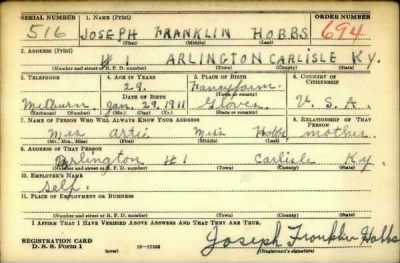 SERIAL NUMBER 1. NAME (Print) ORDER NUMBER
516 JOSEPH FRANKLIN HOBBS 694
(First) (Middle) (Last)
2. ADDRESS (Print)
# 1 ARLINGTON CARLISLE KY.
(Number and street or R. F. D. number) (Town) (County) (State)
3. TELEPHONE 4. AGE IN YEARS 5. PLACE OF BIRTH 6. COUNTRY OF CITIZENSHIP
29. Fancyfarm
DATE OF BIRTH (Town or county)
Milburn Jan. 29, 1911 Graves U. S. A.
(Exchange) (Number) (Mo.) (Day) (Yr.) (State or country)
7. NAME OF PERSON WHO WILL ALWAYS KNOW YOUR ADDRESS 8. RELATIONSHIP OF THAT PERSON
Mrs. Artie Hobbs mother
(Mr., Mrs., Miss) (First) (Middle) (Last)
9. ADDRESS OF THAT PERSON
Arlington # 1 Carlisle Ky.
(Number and street or R. F. D. number) (Town) (County) (State)
10. EMPLOYER'S NAME
Self.
11. PLACE OF EMPLOYMENT OR BUSINESS
(Number and street or R. F. D. number) (Town) (County) (State)
I AFFIRM THAT I HAVE VERIFIED ABOVE ANSWERS AND THAT THEY ARE TRUE.
REGISTRATION CARD
D. S. S. Form 1 (over) 16-17105 (Registrant's signature)
Joseph Franklin Hobbs